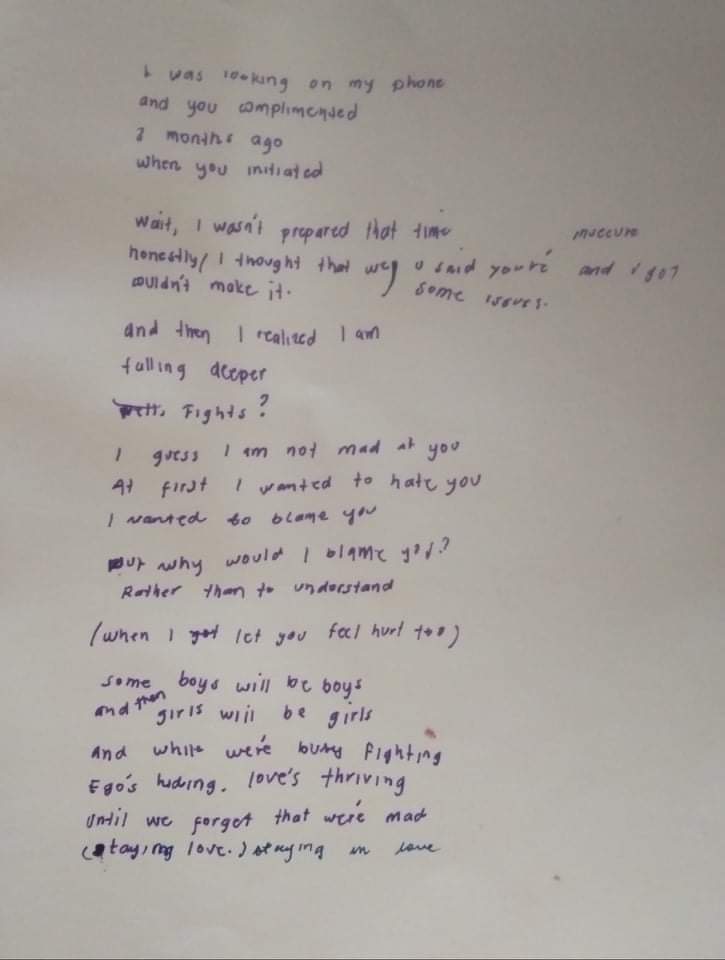 I was looking on my phone
and you complimented
2 months ago
when you initiated
Wait, I wasn't prepared that time
honestly, I thought that we
couldn't make it.
insecure
u said you're and i got
some issues.
and then I realized I am
falling deeper
well, Fights?
I guess I am not mad at you
At first I wanted to hate you
I wanted to blame you
But why would I blame you?
Rather than to understand
(when I got let you feel hurt too)
some boys will be boys
and then girls will be girls
And while we're busy fighting
Ego's hiding. love's thriving
until we forget that we're mad
(staying love.) staying in love